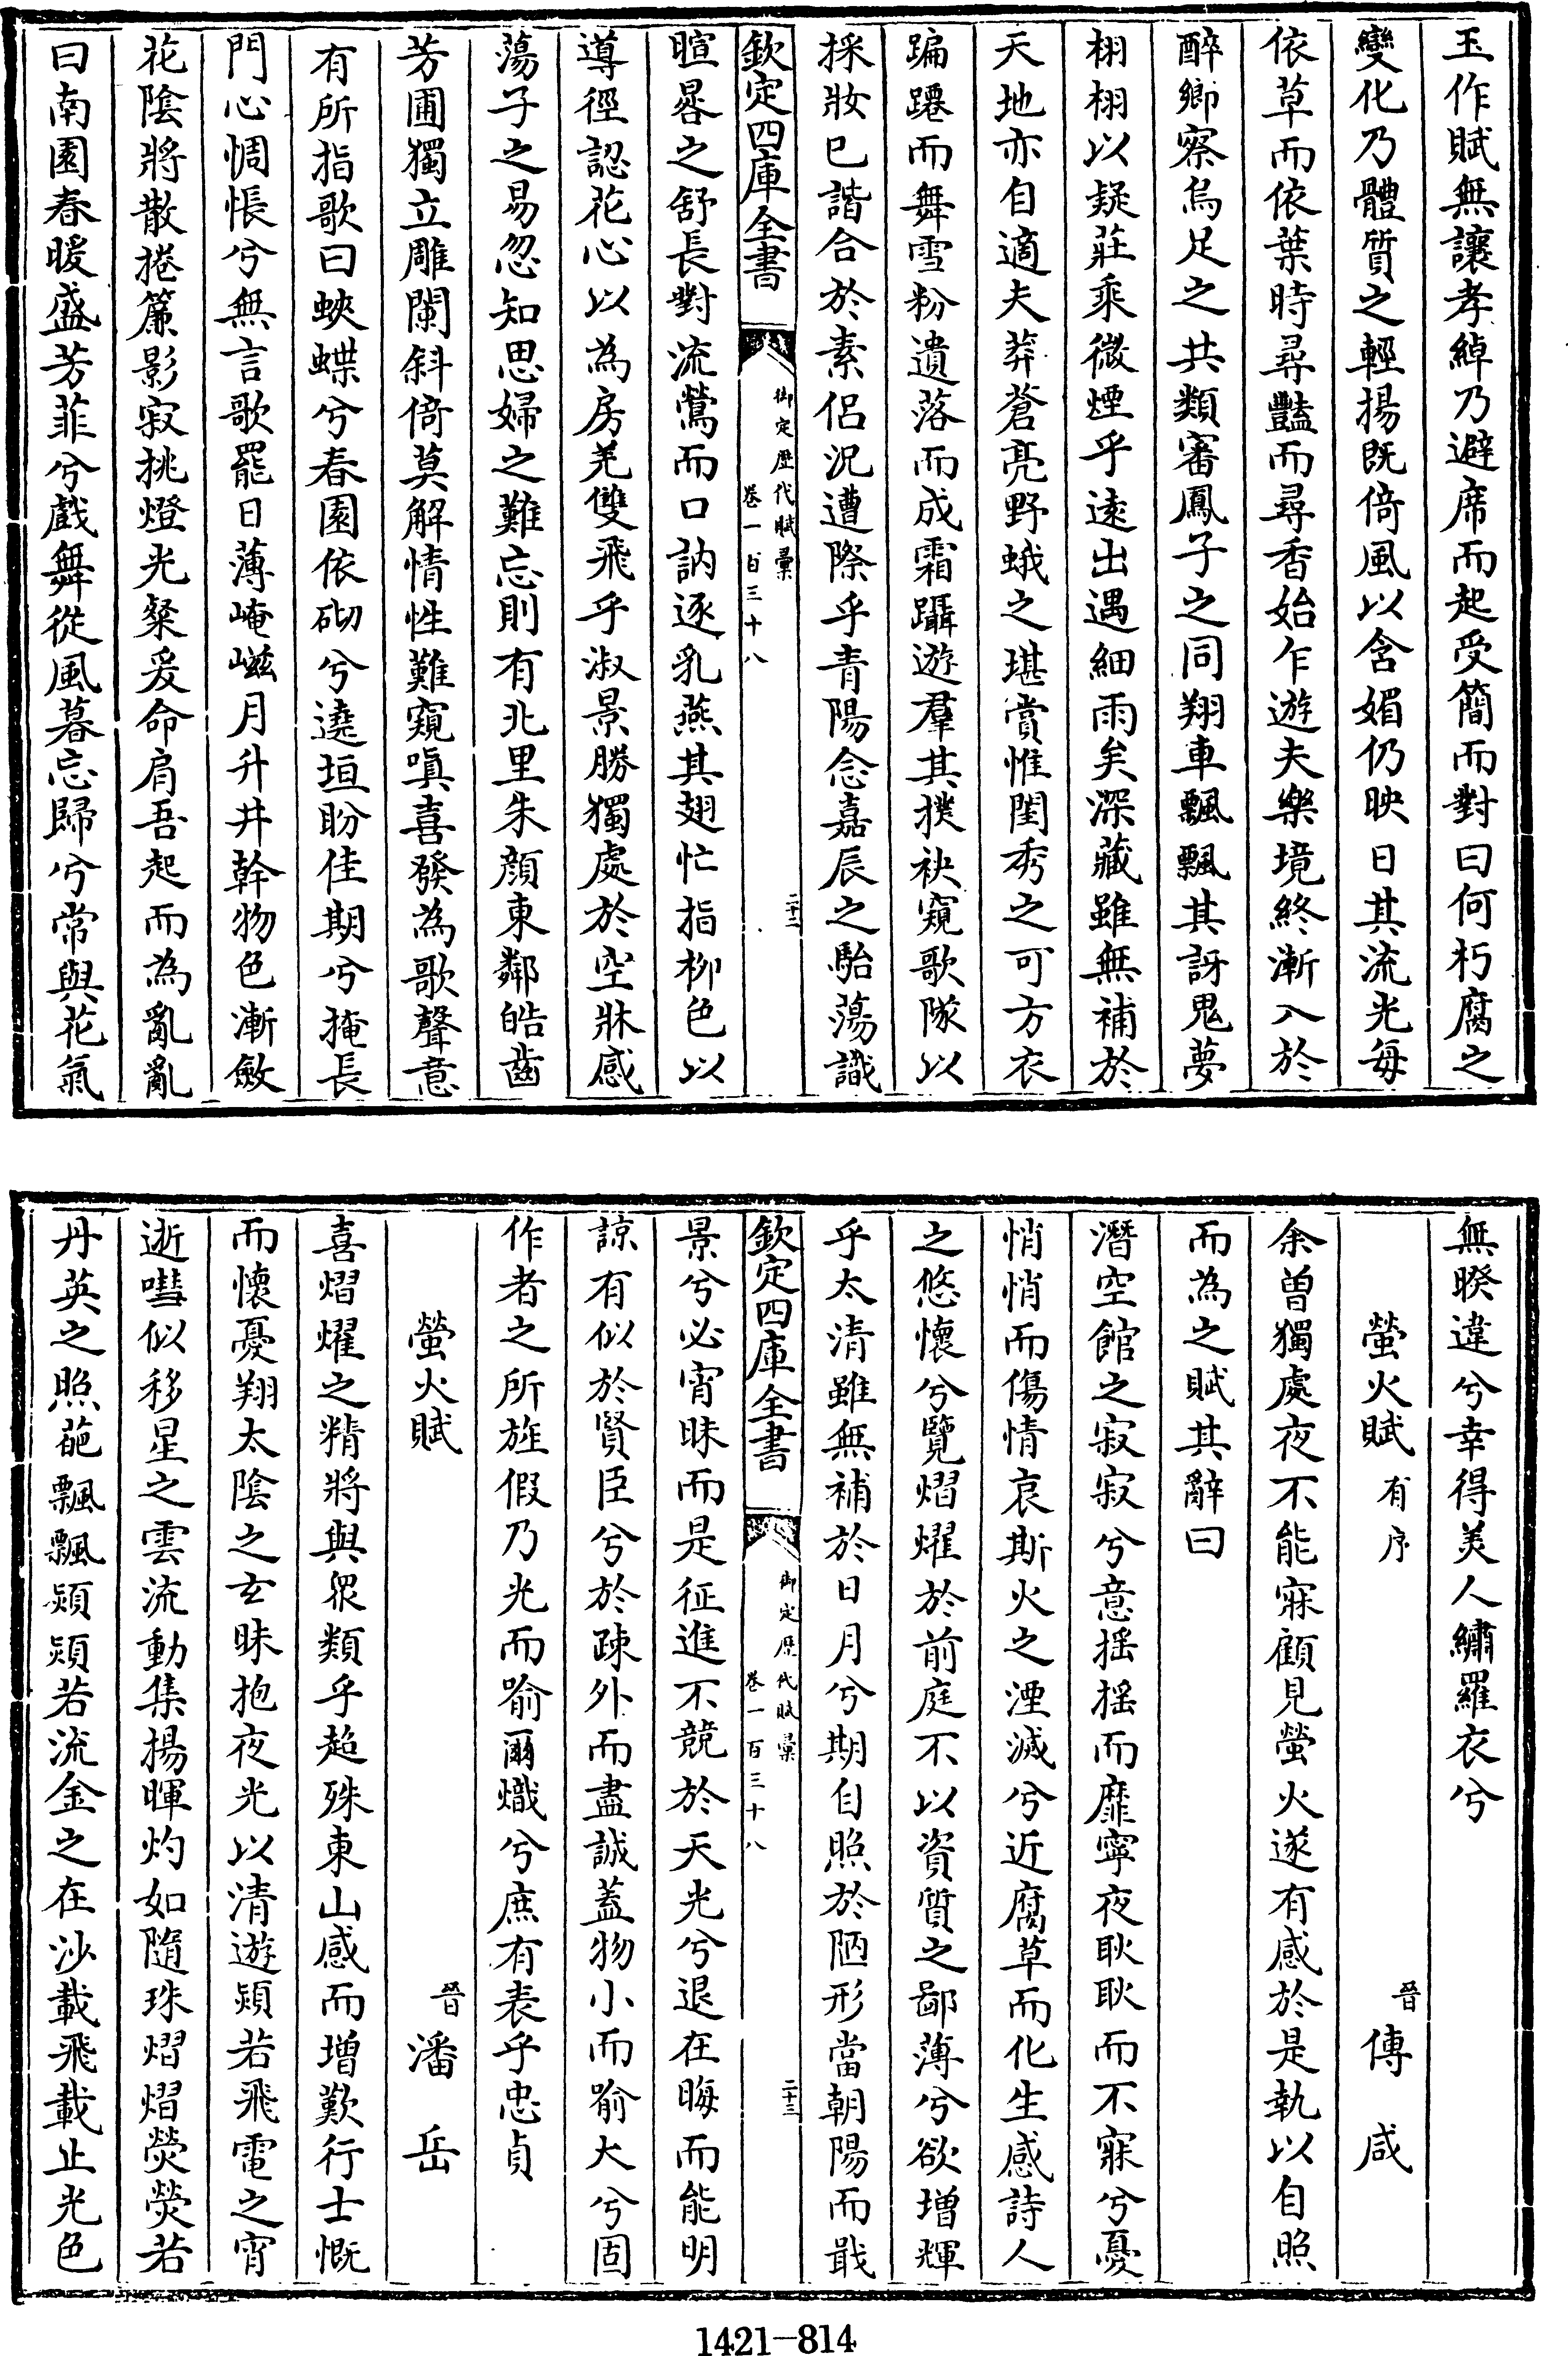 玉作賦無讓孝綽乃避席而起受簡而對曰何朽腐之
變化乃體質之輕揚既倚風以含媚仍映日其流光每
依草而依葉時尋豔而尋香始乍遊夫樂境終漸入於
醉鄉察烏足之共類審鳳子之同翔車飄飄其訝鬼夢
栩栩以疑莊乘微煙乎遠出遇細雨矣深藏雖無補於
天地亦自適夫莽蒼亮野蛾之堪賞惟閨秀之可方衣
蹁躚而舞雪粉遺落而成霜躡遊羣其撲袂窺歌隊以
採妝已諧合於素侶況遭際乎青陽念嘉辰之駘蕩識
欽定四庫全書
御定歷代賦彙
卷一百三十八
二十二
暄晷之舒長對流鶯而口訥逐乳燕其翅忙指柳色以
導徑認花心以為房羌雙飛乎淑景勝獨處於空牀感
蕩子之易忽知思婦之難忘則有北里朱顔東鄰皓齒
芳圃獨立雕闌斜倚莫解情性難窺嗔喜發為歌聲意
有所指歌曰蛺蝶兮春園依砌兮遶垣盼佳期兮掩長
門心惆悵兮無言歌罷日薄崦嵫月升井幹物色漸斂
花陰將散捲簾影寂挑燈光粲爰命肩吾起而為亂亂
曰南園春暖盛芳菲兮戲舞從風暮忘歸兮常與花氣
無暌違兮幸得美人繡羅衣兮
螢火賦 有序 晉 傅咸
余曽獨處夜不能寐顧見螢火遂有感於是執以自照
而為之賦其辭曰
潛空館之寂寂兮意揺揺而靡寧夜耿耿而不寐兮憂
悄悄而傷情哀斯火之湮滅兮近腐草而化生感詩人
之悠懷兮覽熠燿於前庭不以資質之鄙薄兮欲增輝
乎太清雖無補於日月兮期自照於陋形當朝陽而戢
欽定四庫全書
御定歷代賦彙
卷一百三十八
二十三
景兮必宵昧而是征進不競於天光兮退在晦而能明
諒有似於賢臣兮於疎外而盡誠蓋物小而喻大兮固
作者之所旌假乃光而喻爾熾兮庶有表乎忠貞
螢火賦 晉 潘岳
喜熠燿之精將與衆類乎超殊東山感而增歎行士慨
而懷憂翔太陰之玄昧抱夜光以清遊熲若飛電之宵
逝嘒似移星之雲流動集揚暉灼如隨珠熠熠熒熒若
丹英之照葩飄飄熲熲若流金之在沙載飛載止光色
1421-814